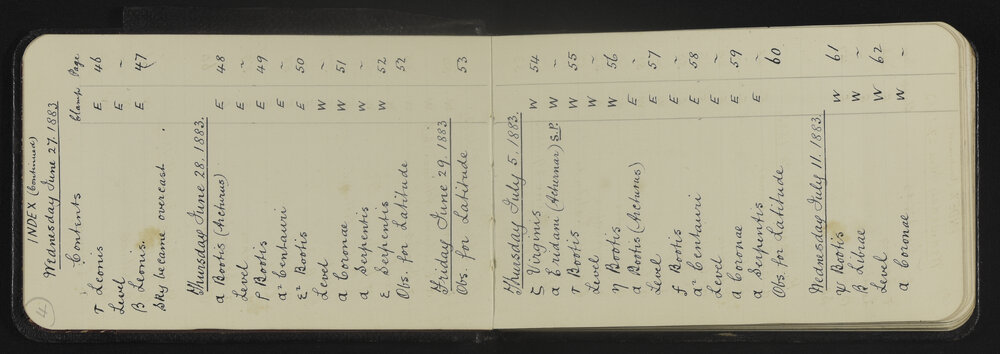 4.
INDEX (Continued)
Wednesday June 27. 1883
Contents Clamp Page
τ Leonis E 46
Level E ~
β Leonis. E 47
Sky became overcast
Thursday June 28. 1883.
α Bootis (Arcturus) E 48
Level E ~
ρ Bootis E 49
α² Centauri E ~
ε² Bootis E 50
Level W ~
α Coronae W 51
α Serpentis W ~
ε Serpentis W 52
Obs. for Latitude 52
Friday June 29. 1883
Obs. for Latitude 53
Thursday July 5. 1883.
ζ Virginis W 54
α Eridani (Achernar) S.P. W ~
τ Bootis W 55
Level W ~
η Bootis W 56
α Bootis (Arcturus) E ~
Level E 57
f Bootis E ~
α² Centauri E 58
Level E ~
α Coronae E 59
α Serpentis E ~
Obs. for Latitude 60
Wednesday July 11. 1883.
ψ Bootis W 61
β Librae W ~
Level W 62
α Coronae W ~